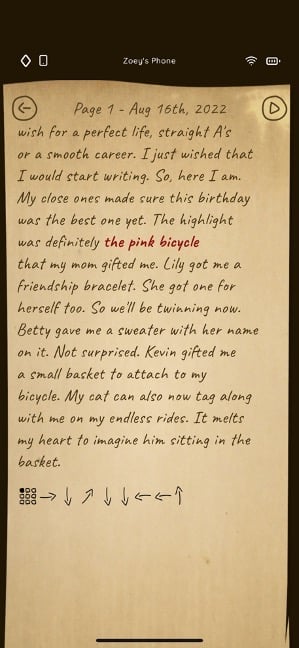 Zoey's Phone
Page 1 - Aug 16th, 2022
wish for a perfect life, straight A's
or a smooth career. I just wished that
I would start writing. So, here I am.
My close ones made sure this birthday
was the best one yet. The highlight
was definitely the pink bicycle
that my mom gifted me. Lily got me a
friendship bracelet. She got one for
herself too. So we'll be twinning now.
Betty gave me a sweater with her name
on it. Not surprised. Kevin gifted me
a small basket to attach to my
bicycle. My cat can also now tag along
with me on my endless rides. It melts
my heart to imagine him sitting in the
basket.
→ ↓ ↗ ↓ ↓ ← ← ↑